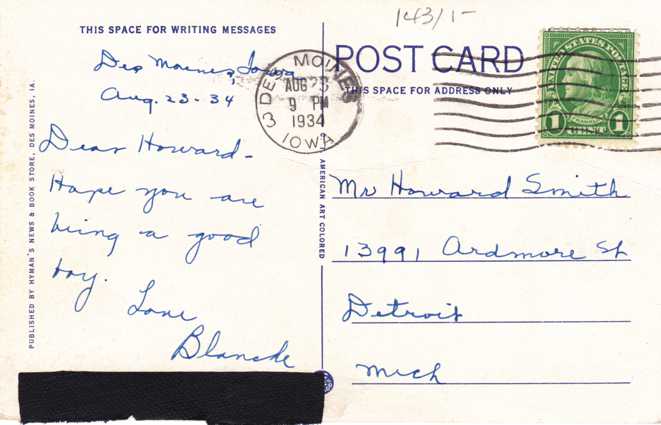 143/1-
THIS SPACE FOR WRITING MESSAGES
POST CARD
THIS SPACE FOR ADDRESS ONLY
Des Moines, Iowa
Aug. 23-34
Dear Howard-
Hope you are
being a good
boy.
Love
Blanche
3 DES MOINES
AUG 23
9 PM
1934
IOWA
UNITED STATES POSTAGE
1 1
Mr Howard Smith
13991 Ardmore St
Detroit
Mich
PUBLISHED BY HYMAN'S NEWS & BOOK STORE, DES MOINES, IA.
AMERICAN ART COLORED